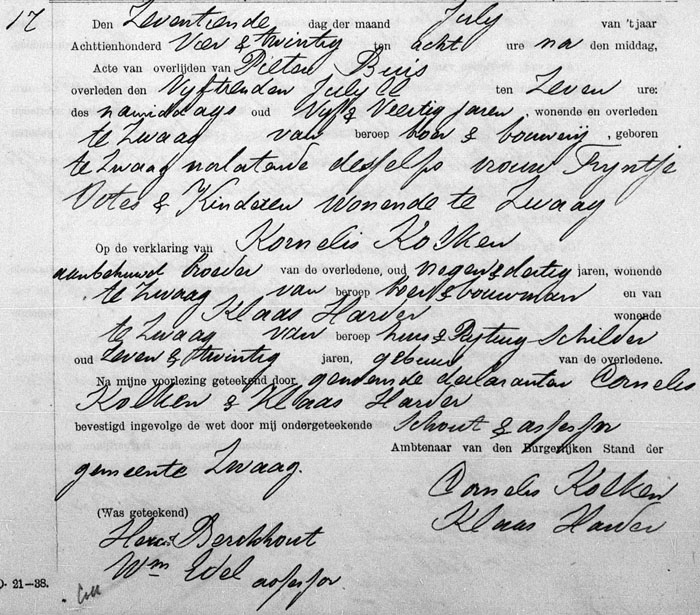 17
Den Zeventiende dag der maand July van 't jaar
Achttienhonderd Vier & twintig ten acht ure na den middag,
Acte van overlijden van Pieter Buis
overleden den Vyftienden July ll ten Zeven ure:
des namiddags oud Vyf & Veertig jaren, wonende en overleden
te Zwaag van beroep boer & bouwerij, geboren
te Zwaag nalatende desselfs vrouw Tryntje
Votes & Kinderen wonende te Zwaag
Op de verklaring van Kornelis Kolken
aanbehuwd broeder van de overledene, oud negen & dertig jaren, wonende
te Zwaag van beroep boer & bouwman en van
Klaas Harder wonende
te Zwaag van beroep huis & Rytuig Schilder
oud Zeven & twintig jaren, gebuur van de overledene.
Na mijne voorlezing geteekend door gemeende declaranten Cornelis
Kolken & Klaas Harder
bevestigd ingevolge de wet door mij ondergeteekende Schout & assessor
Ambtenaar van den Burgerlijken Stand der
gemeente Zwaag.
Cornelis Kolken
Klaas Harder
(Was geteekend)
Berckhout
Wm Edel assessor.
21-38.